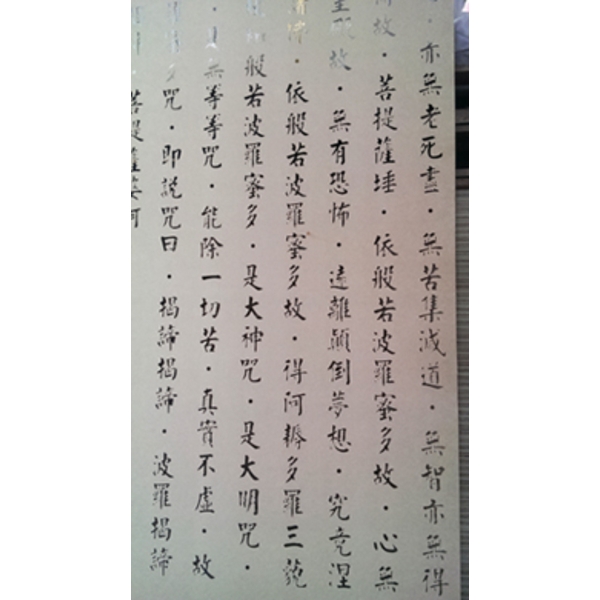 亦無老死盡・無苦集滅道・無智亦無得
故・菩提薩埵・依般若波羅蜜多故・心無
故・無有恐怖・遠離顛倒夢想・究竟涅
佛・依般若波羅蜜多故・得阿耨多羅三藐
般若波羅蜜多・是大神咒・是大明咒・
無等等咒・能除一切苦・真實不虛・故
多咒・即說咒曰・揭諦揭諦・波羅揭諦
菩提薩婆訶